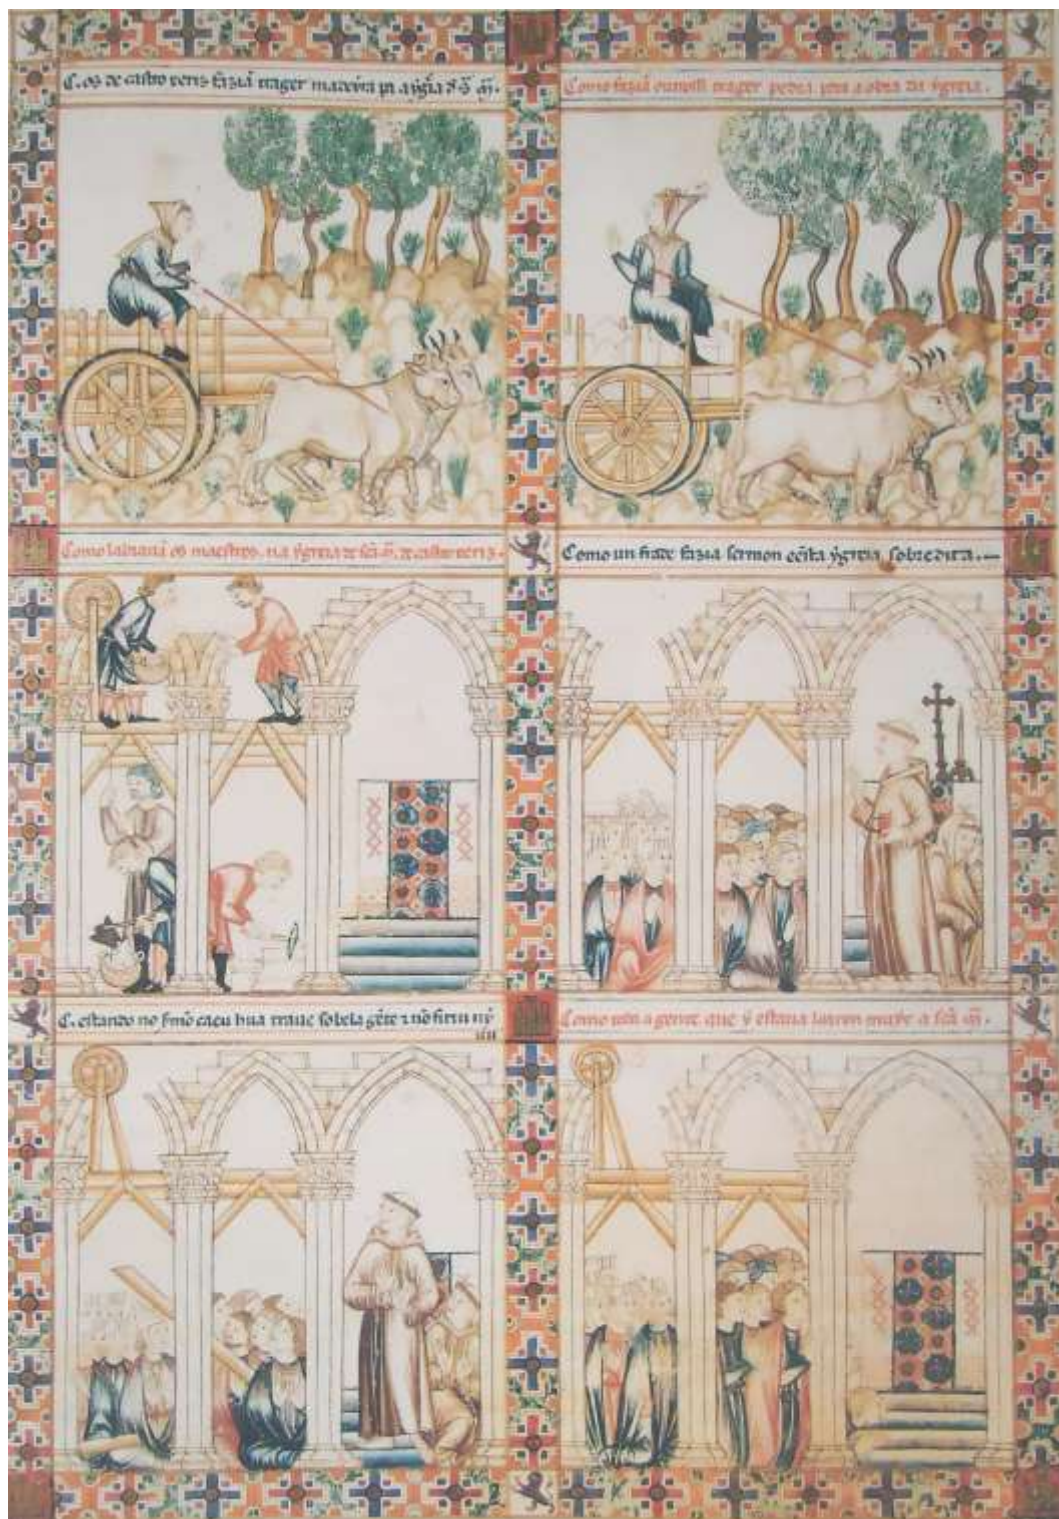 C. os de castro xeriz faziã trager madeyra pa a ygia d' S. M.
Como fazian outrossi trager pedra pera a obra da ygreia.
Como lavravã os maestros. na ygreia de sc̃a m. de castro xeriz.
Como un frade fazia sermon ẽesta ygreia sobredita.
C. estando no s'mõ caeu hũa trave sobela gẽte ⁊ nõ firiu nĩ
Como toda a gente que y estava loaron muyt' a sc̃a m.